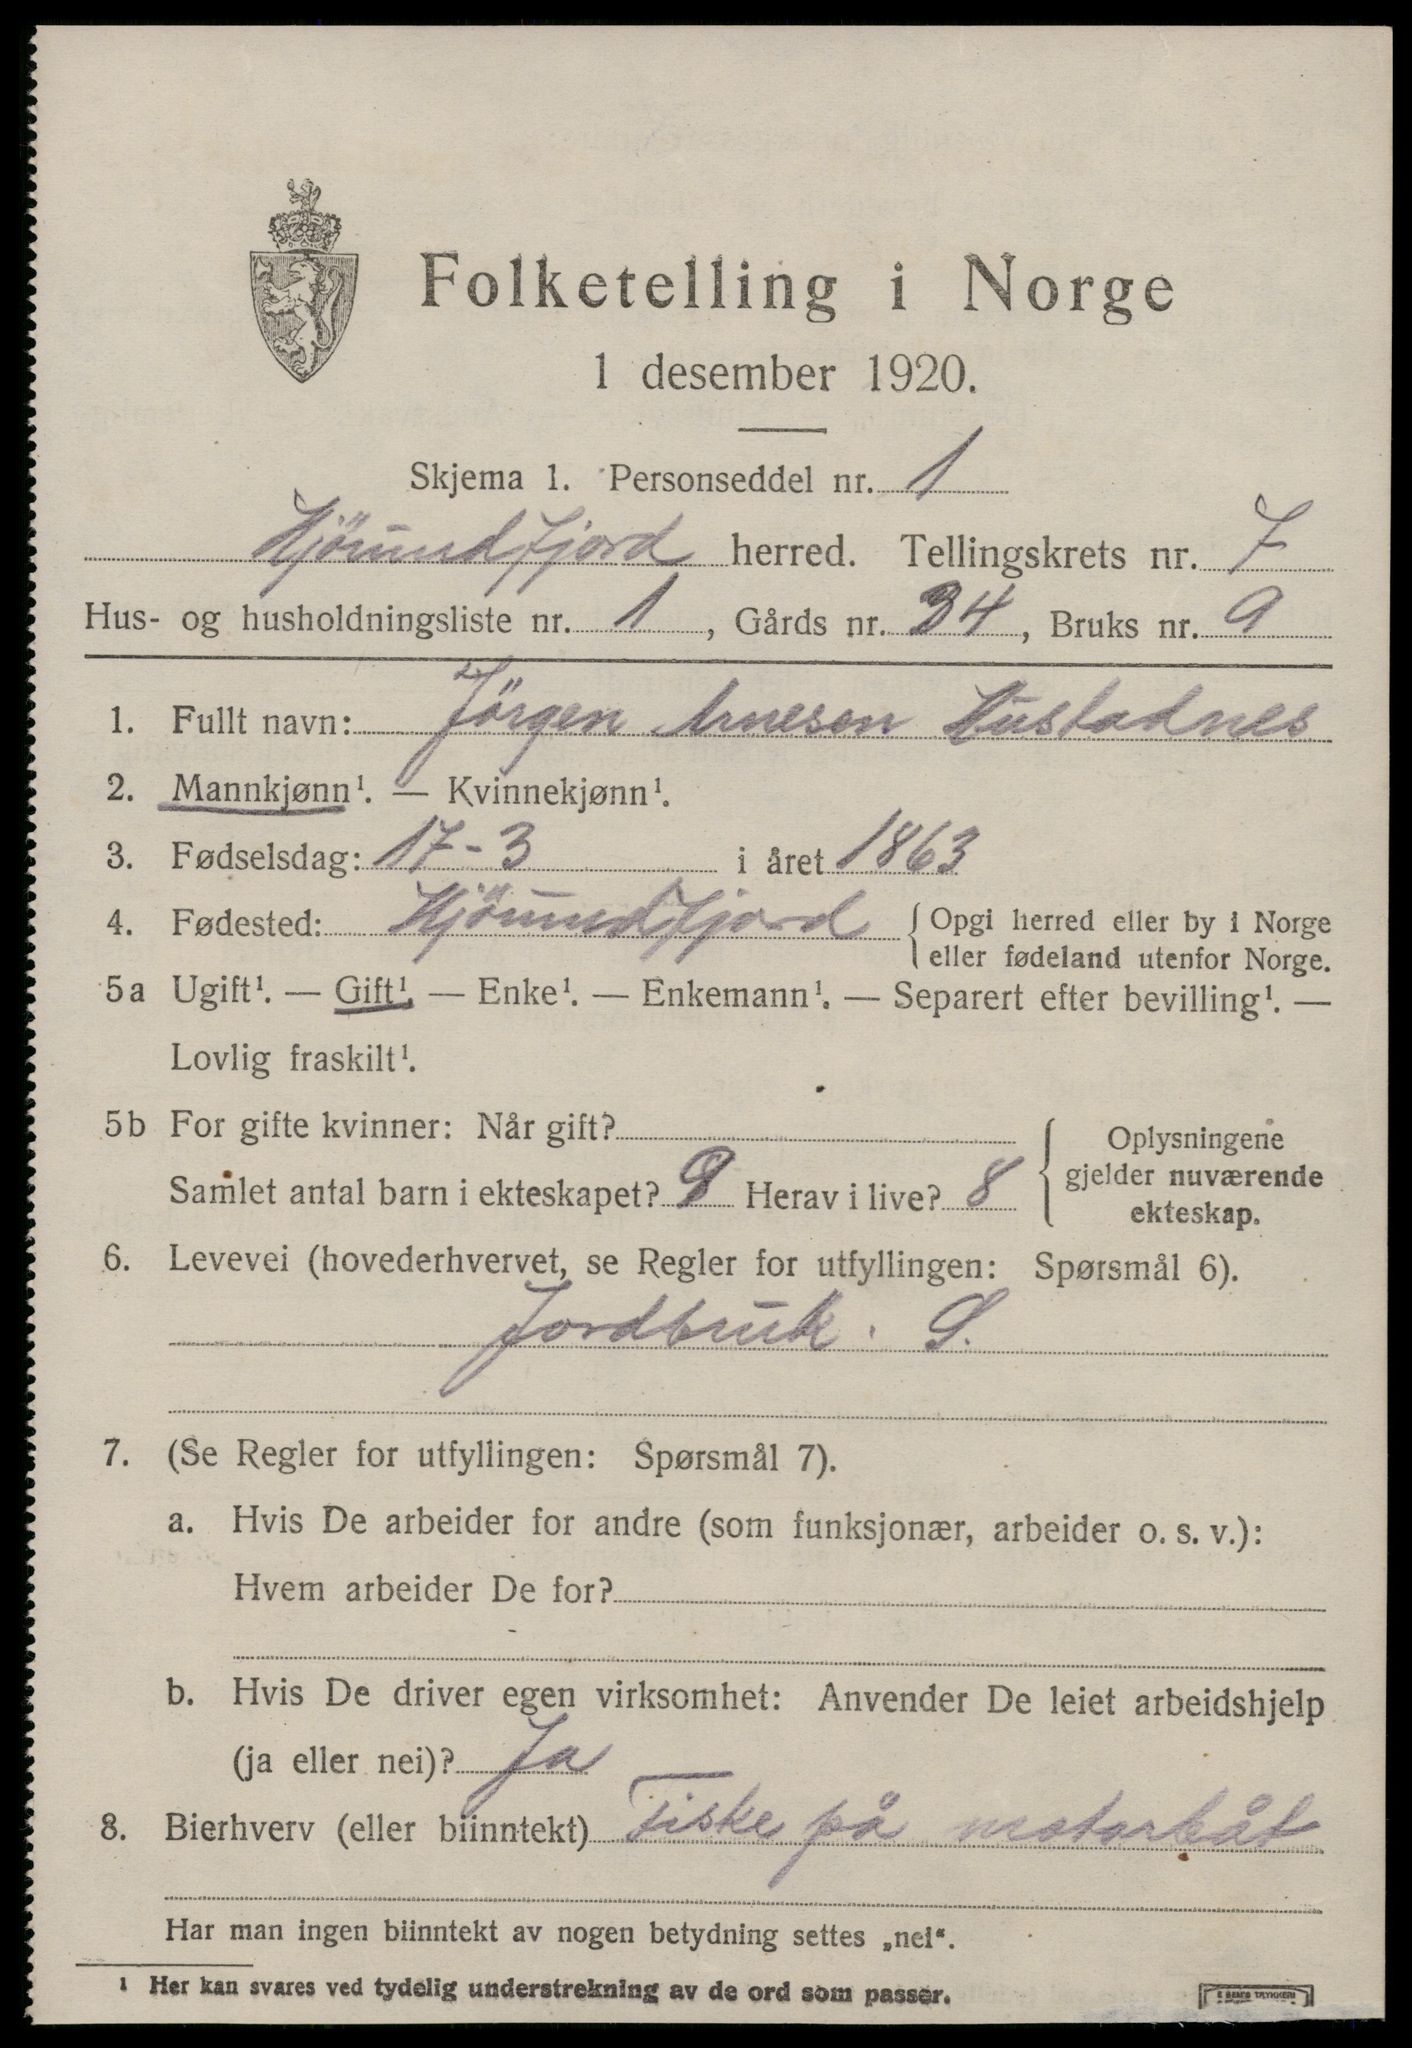 Folketelling i Norge
1 desember 1920.
Skjema 1. Personseddel nr. 1
Hjörundfjord herred. Tellingskrets nr. 7
Hus- og husholdningsliste nr. 1, Gårds nr. 34, Bruks nr. 9
1. Fullt navn: Jörgen Arnesen Hustadnes
2. Mannkjønn¹. — Kvinnekjønn¹.
3. Fødselsdag: 17-3 i året 1863
4. Fødested: Hjörundfjord { Opgi herred eller by i Norge
eller fødeland utenfor Norge.
5a Ugift¹. — Gift¹. — Enke¹. — Enkemann¹. — Separert efter bevilling¹. —
Lovlig fraskilt¹.
5b For gifte kvinner: Når gift?
Samlet antal barn i ekteskapet? 9 Herav i live? 8
{ Oplysningene
gjelder nuværende
ekteskap.
6. Levevei (hovederhvervet, se Regler for utfyllingen: Spørsmål 6).
Jordbruk. S.
7. (Se Regler for utfyllingen: Spørsmål 7).
a. Hvis De arbeider for andre (som funksjonær, arbeider o. s. v.):
Hvem arbeider De for?
b. Hvis De driver egen virksomhet: Anvender De leiet arbeidshjelp
(ja eller nei)? Ja
8. Bierhverv (eller biinntekt) Fiske på motorbåt
Har man ingen biinntekt av nogen betydning settes „nei“.
¹ Her kan svares ved tydelig understrekning av de ord som passer.